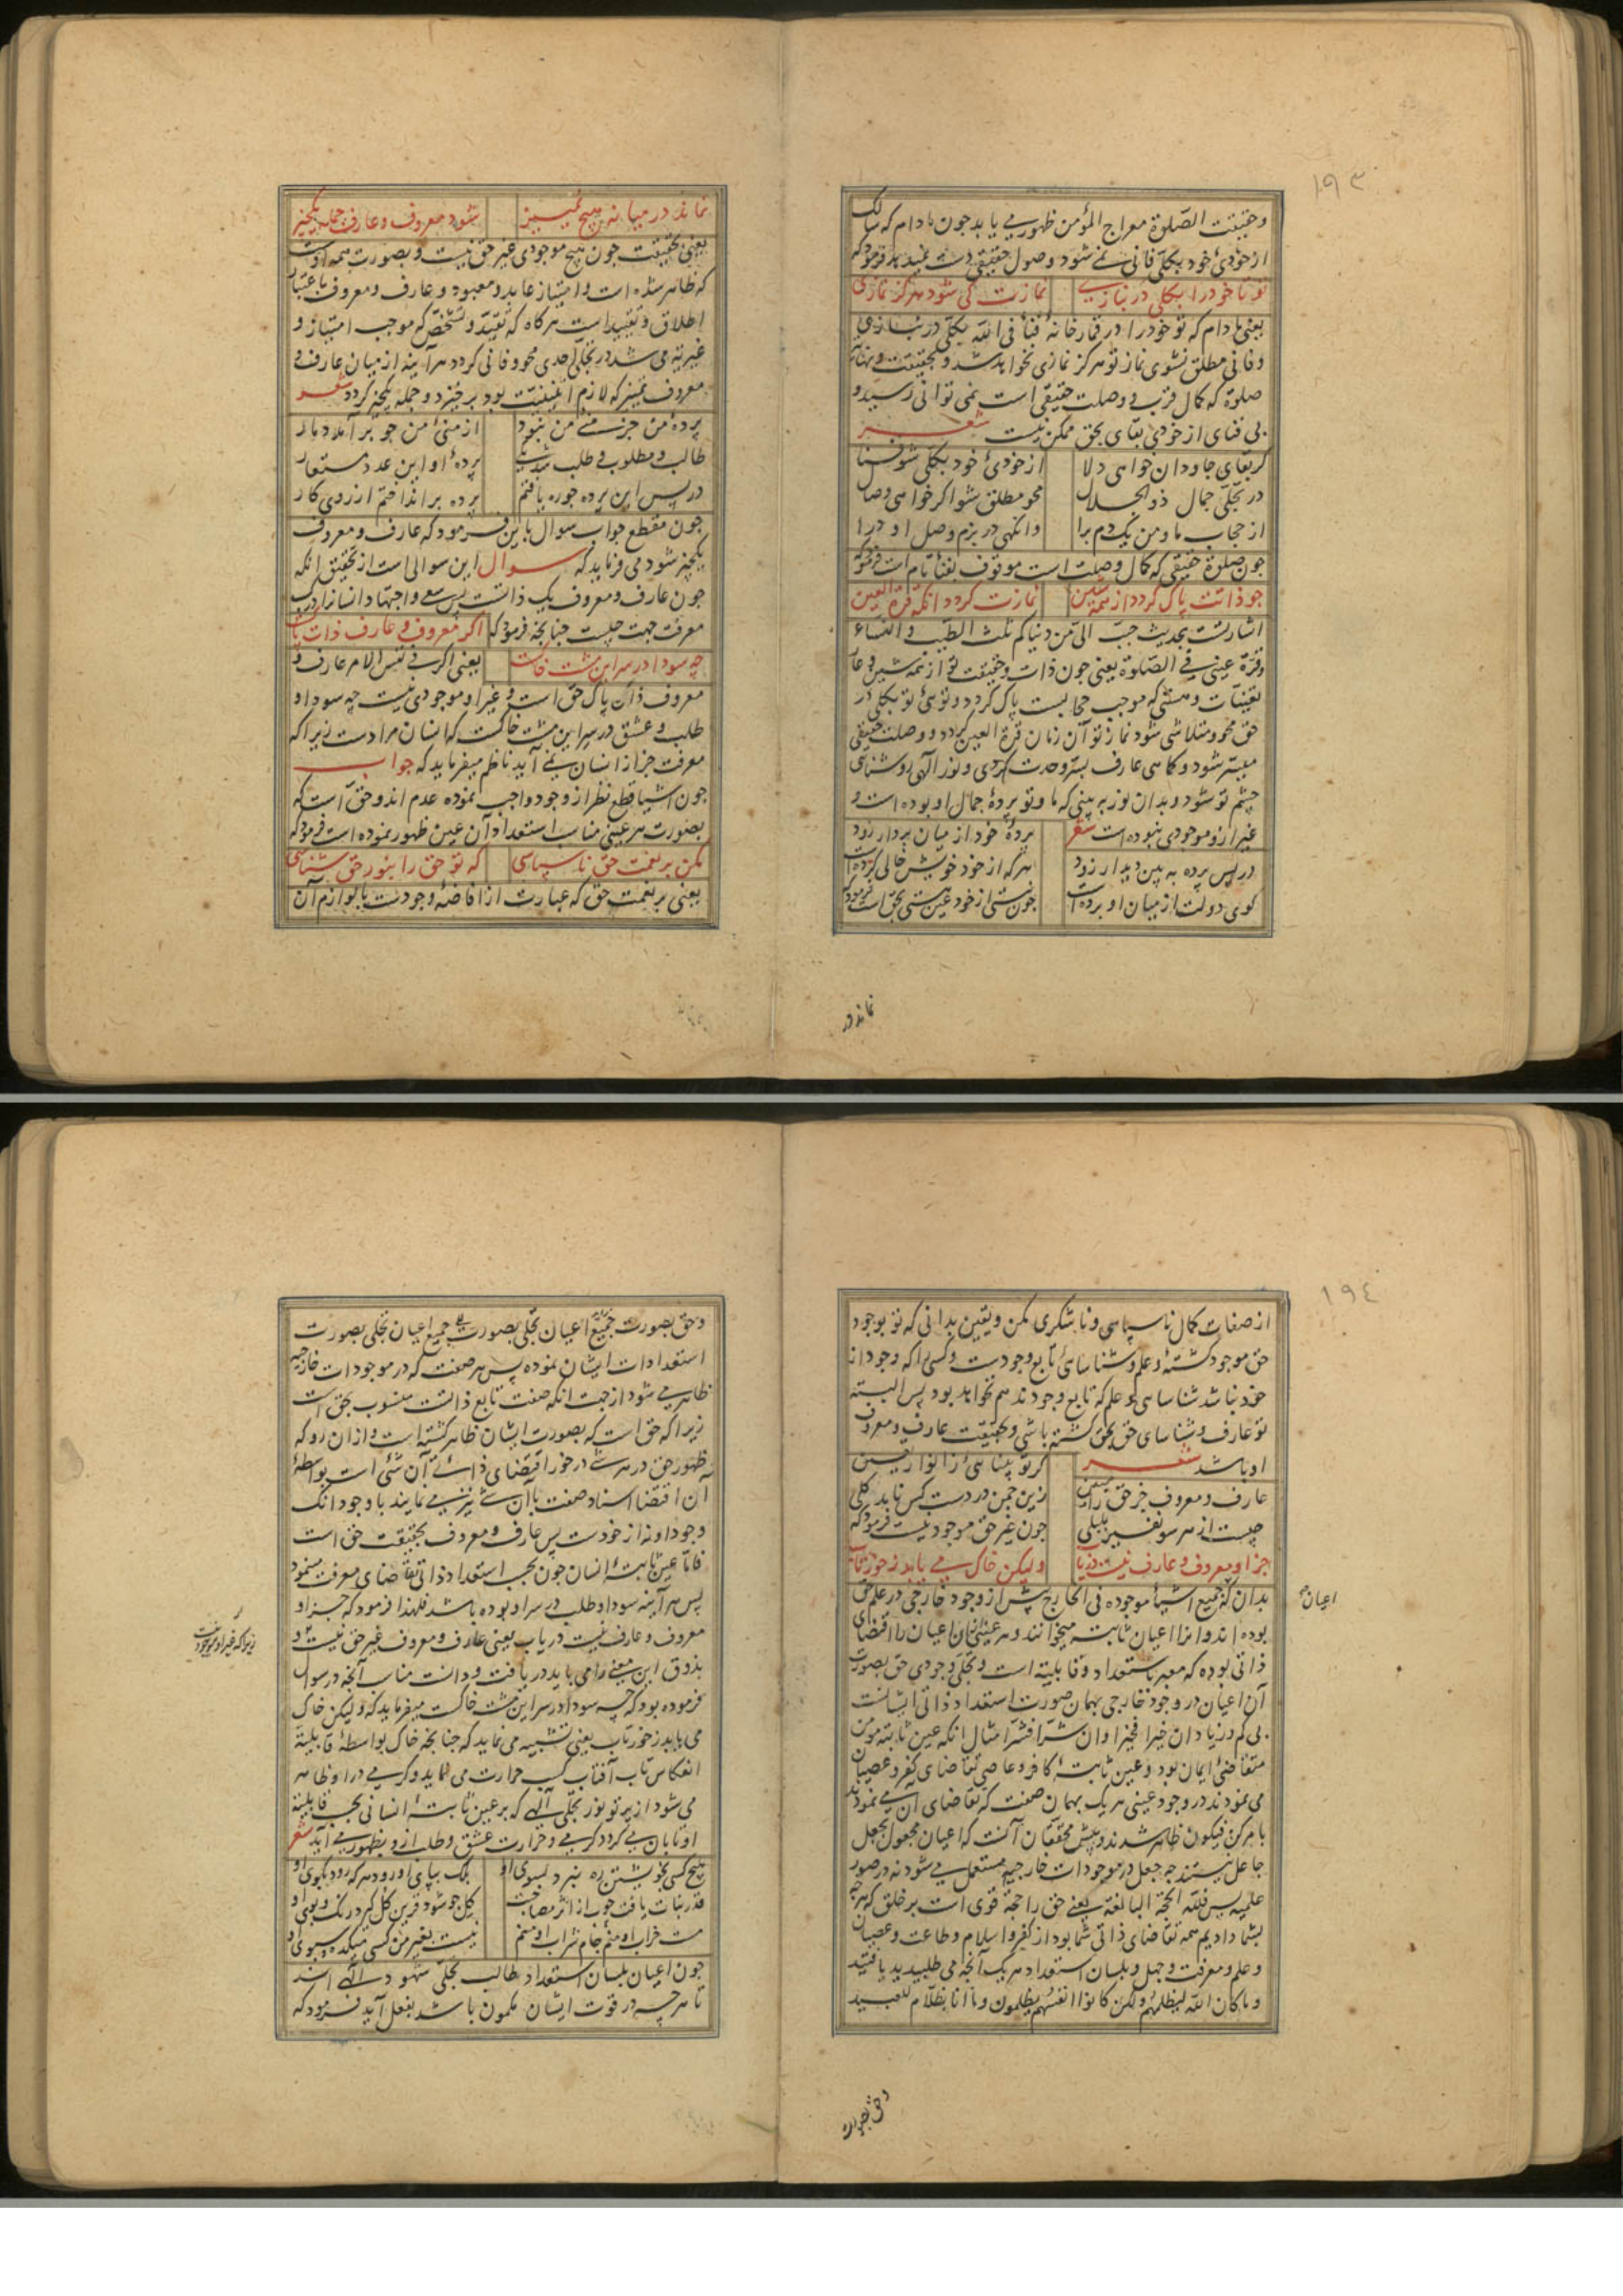 ١٩٣
وحقیقت الصلوة معراج المؤمن ظهور می یابد جون مادام که سالک
از خودی خود بکلی فانی نمی شود وصول حقیقی دست نمیدهد فرمود که
تو تا خود را بکلی در نبازی نمازت کی شود هرگز نمازی
یعنی مادام که تو خود را در قمارخانهٔ فنا فی الله بکلی در نبازی
وفانی مطلق نشوی نماز تو هرگز نمازی نخواهد شد و بحقیقت
صلوة که کمال قرب و وصلت حقیقی است نمی توانی رسید و
بی فنای از خودی بقای بحق ممکن نیست شعر
کر بقای جاودان خواهی دلا از خودی خود بکلی شو فنا
در تجلی جمال ذو الجلال محو مطلق شو اگر خواهی وصال
از حجاب ما ومن یک دم برا وانگهی در بزم وصل او درا
جون صلوة حقیقی که کمال وصلت است موقوف بفنا تام است فرمود که
جو ذاتت پاک گردد از همه شین نمازت گردد آنگه قرة العین
اشارتست بحدیث حبب الی من دنیاکم ثلث الطیب و النساء
وقرة عینی فی الصلوة یعنی جون ذات وحقیقت تو از همه شین و عار
تعینات وهستی که موجب حجابست پاک کردد وتوئی تو بکلی در
حق محو ومتلاشی شود نماز تو آن زمان قرة العین گردد و وصلت حقیقی
میسر شود وکاهی عارف بسر وحدت گردی و نور الهی روشنای
چشم تو شود وبدان نور به بینی که ما وتو پردهٔ جمال او بوده است و
غیر ازو موجودی نبوده است شعر پردهٔ خود از میان بردار زود
در پس پرده به بین دیدار زود هر که از خود خویش خالی کرده است
کوی دولت از میان او برده است جون نیستی از خود عین هستی بحق است فرمود که
نماندر
نماند در میانه هیچ تمییز شود معروف و عارف جمله یکچیز
یعنی بحقیقت جون هیچ موجودی غیر حق نیست و بصورت همه اوست
که ظاهر شده است وامتیاز عابد ومعبود و عارف ومعروف باعتبار
اطلاق و تقیید است هرگاه که تقید و تشخص که موجب امتیاز و
غیریة می شد در تجلی احدی محو وفانی کردد هرآینه از میان عارف و
معروف تمییز که لازم اثنینیت بود برخیزد و جمله یکچیز کردد شعر
پردهٔ من جز منی من نبود از منی من جو برآمد دمار
طالب و مطلوب و طلب شد یکی پردهٔ او این عدد مستعار
در پس این پرده جو ره یافتم پرده برانداختم از روی کار
جون مقطع جواب سوال باین فرمود که عارف و معروف
یکچیز شود می فرماید که سوال این سوالی است از تحقیق آنکه
جون عارف و معروف یک ذاتست پس سعی واجتهاد انسان را در کسب
معرفت جهت چیست چنانچه فرمود که اگر معروف و عارف ذات پاک است
چه سودا در سر این مشت خاکست یعنی اگر فی نفس الامر عارف و
معروف ذات پاک حق است و غیر او موجودی نیست چه سودا و
طلب و عشق در سر این مشت خاکست که انسان مرادست زیرا که
معرفت جز از انسان نمی آید ناظم میفرماید که جواب
جون اشیا قطع نظر از وجود واجب نموده عدم اند وحق است که
بصورت هر عینی مناسب استعداد آن عین ظهور نموده است فرمود که
مکن بر نعمت حق ناسپاسی که تو حق را بنور حق شناسی
یعنی بر نعمت حق که عبارت از افاضهٔ وجودست با لوازم آن
١٩٤
از صفات کمال ناسپاسی و ناشکری مکن ویقین بدانی که تو بوجود
حق موجود گشتهٔ و علم و شناسای تابع وجودست وکسی را که وجود از
خود نباشد شناسای و علم که تابع وجودند هم نخواهد بود پس البته
تو عارف و شناسای حق بحق گشته باشی وبحقیقت عارف ومعروف
او باشد شعر کر تو بینائی ز انوار یقین
عارف و معروف جز حق را مبین زین چمن در دست کس ناید گلی
چیست از هر سو نفیر بلبلی جون غیر حق موجود نیست فرمود که
جز او معروف و عارف نیست دریاب ولیکن خاک می یابد ز خور تاب
بدان که جمیع اشیاء موجوده فی الخارج پیش از وجود خارجی در علم حق
بوده اند وانرا اعیان ثابته میخوانند و هر عینی از ان اعیان را اقتضای
اعیان
ذاتی بوده که معبر باستعداد و قابلیة است و تجلی وجودی حق بصورت
آن اعیان در وجود خارجی بهمان صورت استعداد ذاتی ایشانست
بی کم و زیاد ان خیرا فخیرا وان شرا فشرا مثال آنکه عین ثابته مومن
متقاضی ایمان بود و عین ثابتهٔ کافر و عاصی تقاضای کفر وعصیان
می نمودند در وجود عینی هریک بهمان صفت که تقاضای آن می نمودند
بامر کن فیکون ظاهر شدند وپیش محققان آنست که اعیان مجعول بجعل
جاعل نیستند چه جعل در موجودات خارجیه مستعمل می شود نه در صور
علمیه پس فلله الحجة البالغة یعنی حق را حجة قوی است بر خلق که هرچه
بشما دادیم همه تقاضای ذاتی شما بود از کفر و اسلام و طاعت و عصیان
و علم ومعرفت و جهل و بلسان استعداد هریک آنچه می طلبیدید یافتید
وما کان الله لیظلمهم ولکن کانوا انفسهم یظلمون وما انا بظلام للعبید
وحق بصورت
وحق بصورت جمیع اعیان تجلی بصورت جمیع اعیان تجلی بصورت
استعدادات ایشان نموده پس هر صفت که در موجودات خارجیه
ظاهر می شود از جهت آنکه صفت تابع ذاتست منسوب بحق است
زیرا که حق است که بصورت ایشان ظاهر گشته است و از ان رو که
ظهور حق در هر شی در خور اقتضای ذاتی آن شئ است بواسطهٔ
آن اقتضا اسناد صفت بآن شی نیز می نمایند با وجود آنک
وجود او نه از خودست پس عارف و معروف بحقیقت حق است
فاما عین ثابتهٔ انسان جون بحسب استعداد ذاتی تقاضای معرفت مینمود
پس هرآینه سودا وطلب در سر او بوده باشد فلهذا فرمود که جز او
معروف و عارف نیست دریاب یعنی عارف و معروف غیر حق نیست و
زیرا که غیر او موجود نیست
بذوق این معنی را می باید دریافت و دانست مناسب آنچه در سوال
فرموده بود که چه سودا در سر این مشت خاکست میفرماید که ولیکن خاک
می یابد ز خور تاب یعنی تشبیه می نماید که چنانچه خاک بواسطهٔ قابلیة
انعکاس تاب آفتاب کسب حرارت می نماید و کرمی در او ظاهر
می شود از پرتو نور تجلی الهی که بر عین ثابتهٔ انسانی بحسب قابلیة
او تابان می گردد کرمی و حرارت عشق و طلب ازو بظهور می آید شعر
هیچ کسی بخویشتن ره نبرد بسوی او بلک بپای او رود هر که رود بکوی او
قدر نبات یافت چوب از اثر مصاحبت گل جو شود قرین گل گیرد رنگ و بوی او
مست خراب او منم جام شراب او منم نیست بغیر من کسی میکده و سبوی او
جون اعیان بلسان استعداد طالب تجلی شهودی الهی اند
تا هرچه در قوت ایشان مکمون باشد بفعل آید فرمود که